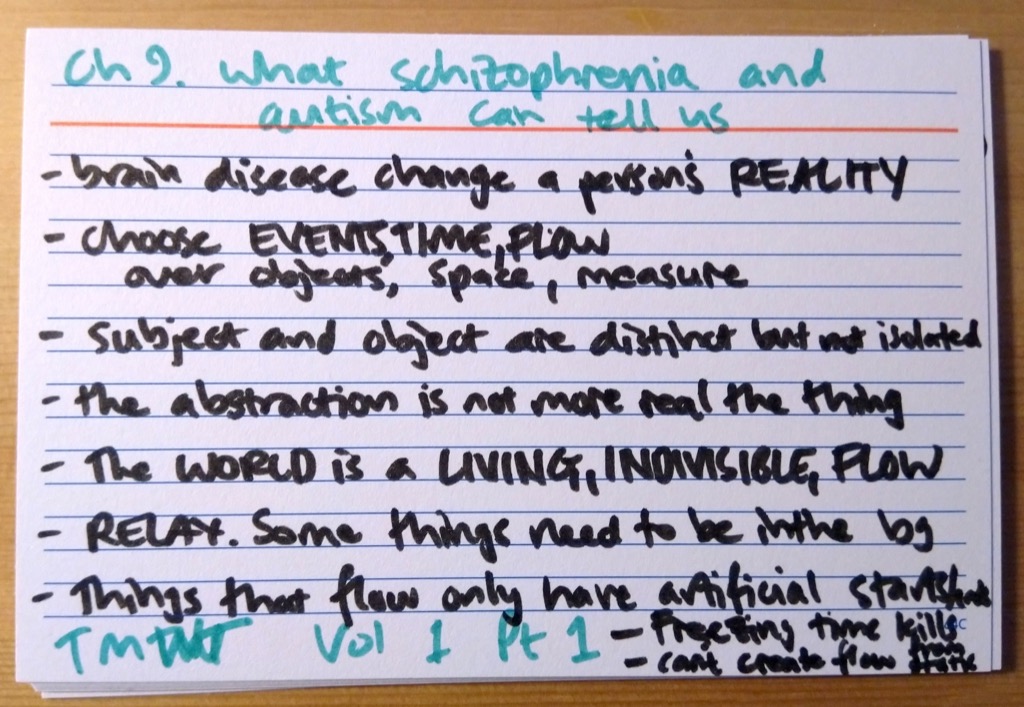 Ch 9. What schizophrenia and
autism can tell us
- brain disease change a person's REALITY
- choose EVENTS, TIME, FLOW
over objects, space, measure
- subject and object are distinct but not isolated
- the abstraction is not more real the thing
- The WORLD is a LIVING, INDIVISIBLE, FLOW
- RELAX. Some things need to be in the bg
- Things that flow only have artificial starts/ends
TMWT Vol 1 Pt 1
- Freezing time kills
- can't create flow from static